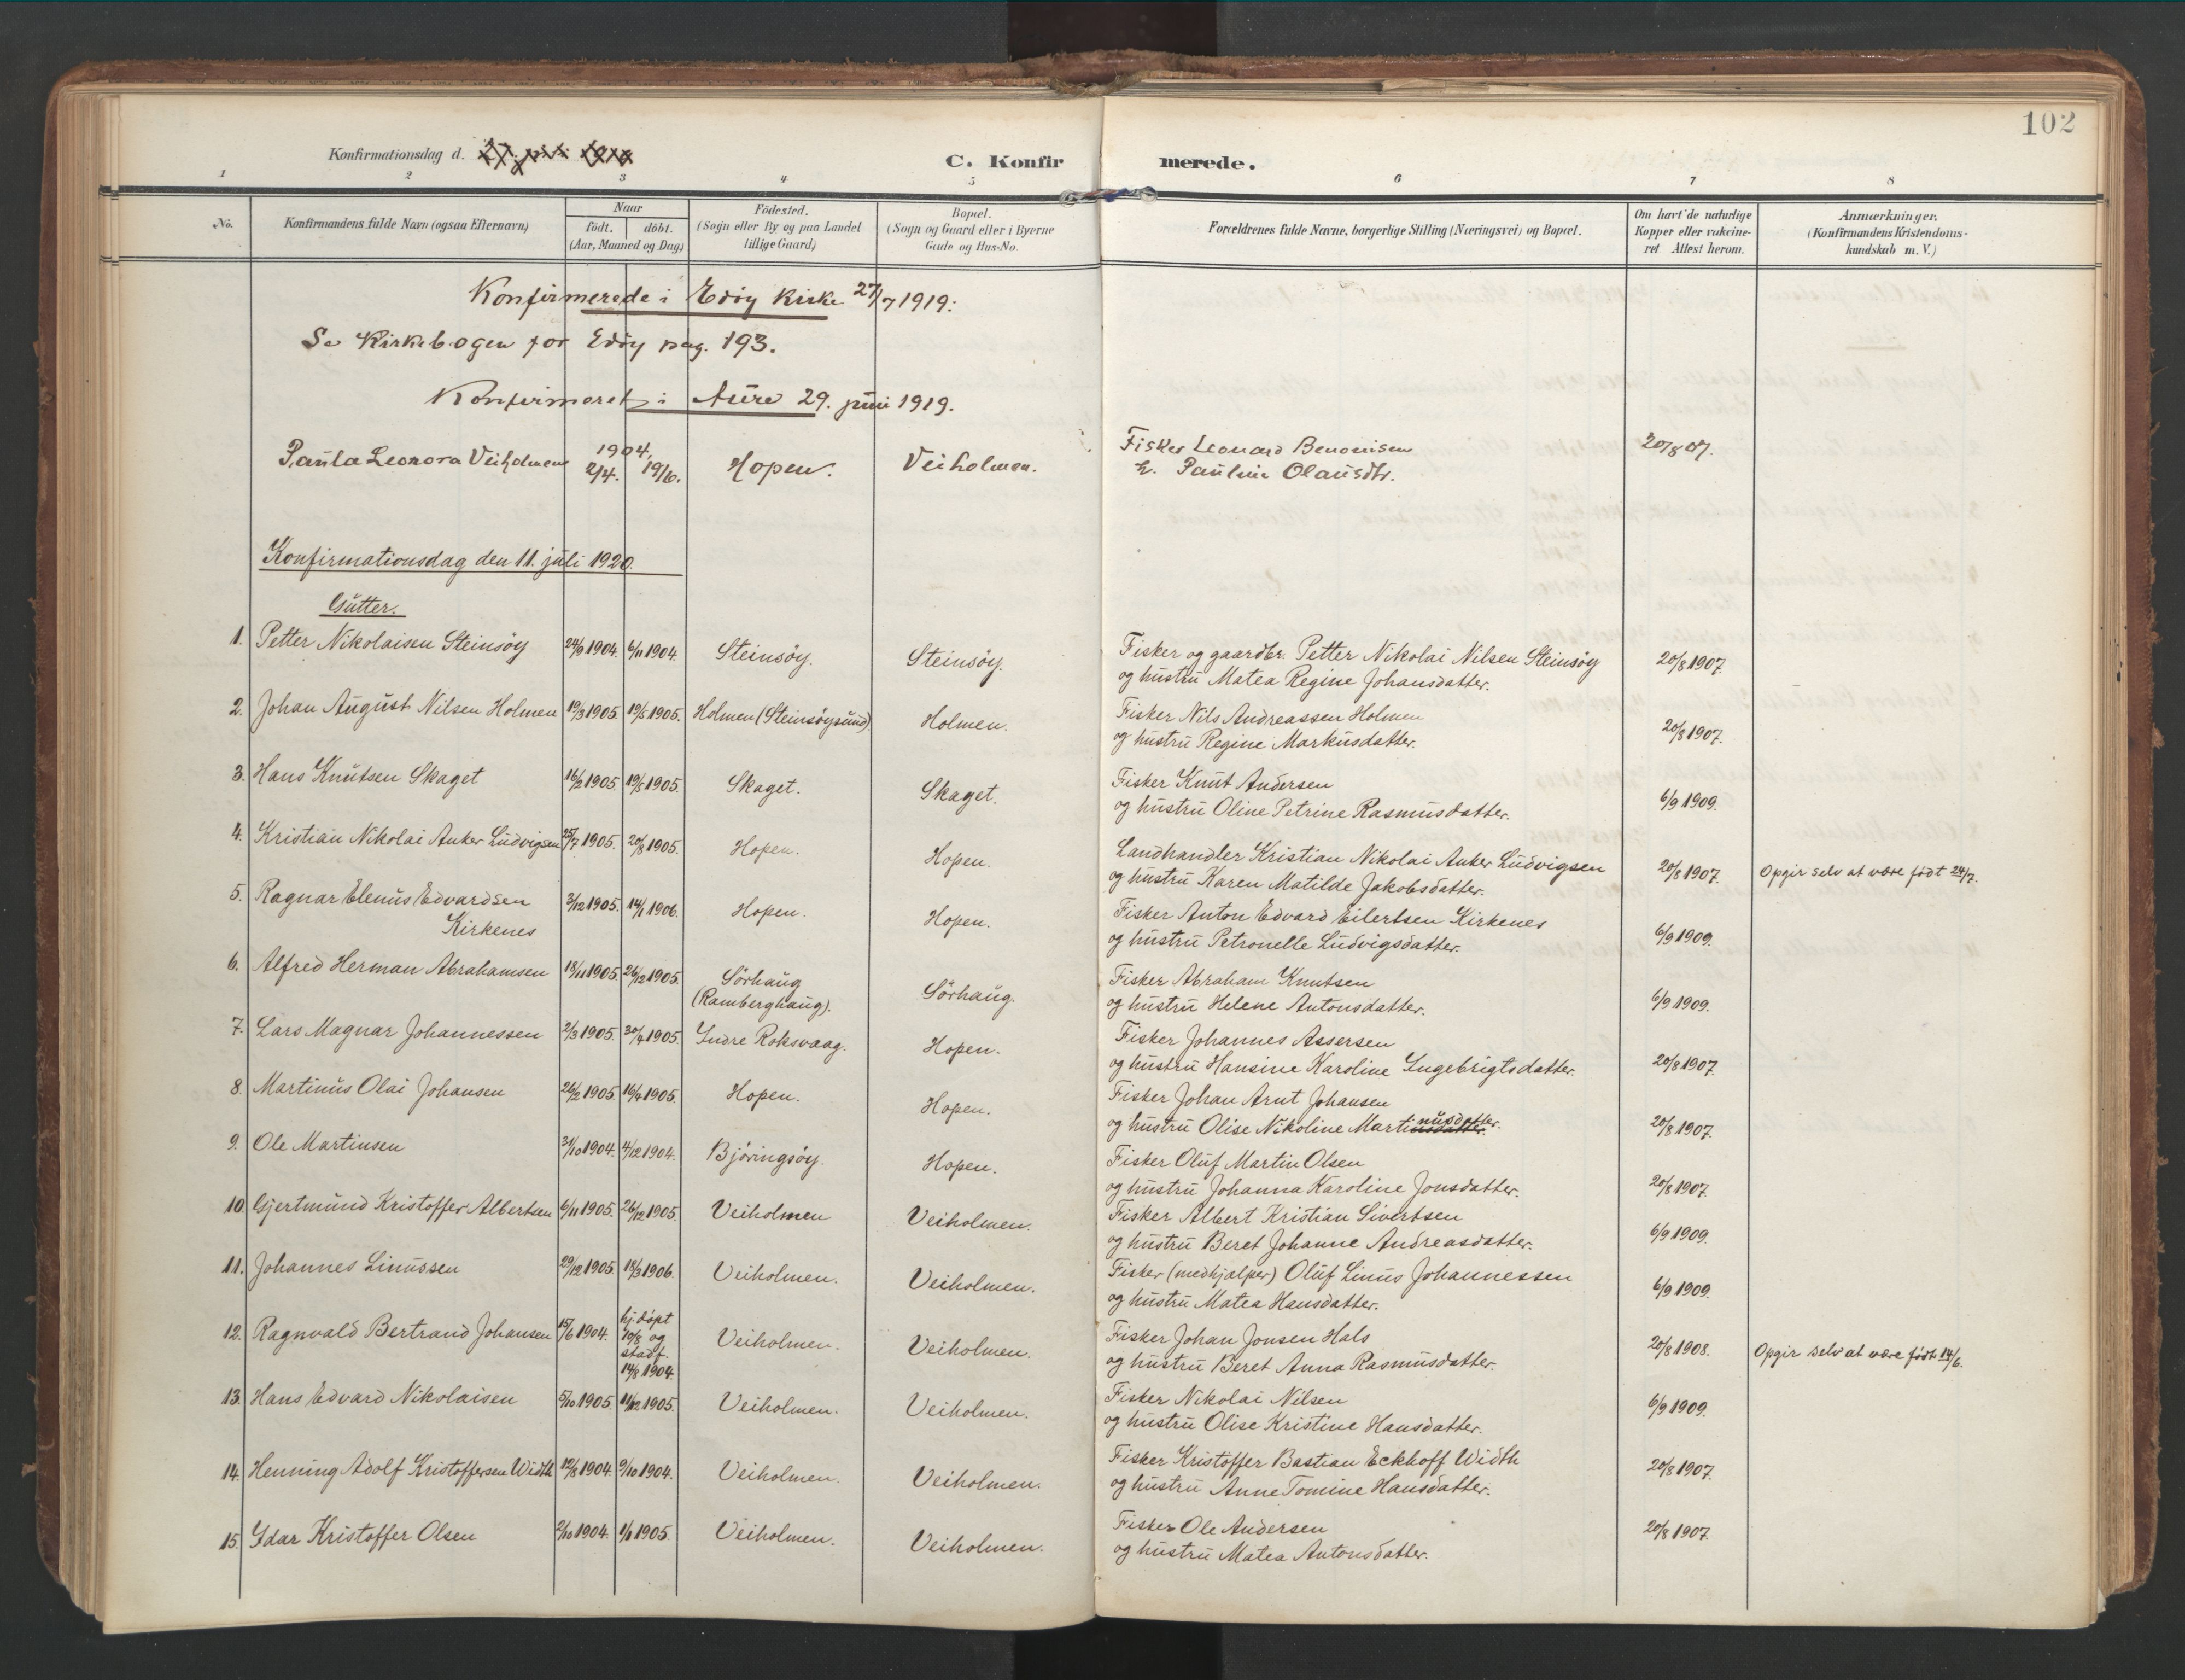 102
Konfirmationsdag d.
C. Konfirmerede.
1 2 3 4 5 6 7 8
No. Konfirmandens fulde Navn (ogsaa Efternavn) Naar født. døbt. (Aar, Maaned og Dag) Fødested. (Sogn eller By og paa Landet tillige Gaard) Bopæl. (Sogn og Gaard eller i Byerne Gade og Hus-No. Forældrenes fulde Navne, borgerlige Stilling (Næringsvei) og Bopæl. Om havt de naturlige Kopper eller vakcineret Attest herom. Anmærkninger. (Konfirmandens Kristendomskundskab m. V.)
Konfirmerede i Edøy Kirke 27/7 1919:
Se Kirkebogen for Edøy pag. 193.
Konfirmeret i Aure 29. juni 1919.
Paula Leonora Veiholmen 1904. 2/4. 19/6. Hopen. Veiholmen. Fisker Leonard Benonisen 20/8 07.
h. Pauline Olausdtr.
Konfirmationsdag den 11. juli 1920.
Gutter.
1. Petter Nikolaisen Steinsöy 24/9 1904. 6/11 1904. Steinsöy. Steinsöy. Fisker og gaardbr. Petter Nikolai Nilsen Steinsöy 20/8 1907.
og hustru Matea Regine Johansdatter.
2. Johan August Nilsen Holmen 19/3 1905. 19/5 1905. Holmen (Steinsöysund). Holmen. Fisker Nils Andreassen Holmen 20/8 1907.
og hustru Regine Markusdatter.
3. Hans Knutsen Skaget 16/2 1905. 19/5 1905. Skaget. Skaget. Fisker Knut Andersen 6/9 1909.
og hustru Oline Petrine Rasmusdatter.
4. Kristian Nikolai Anker Ludvigsen 25/7 1905. 20/8 1905. Hopen. Hopen. Landhandler Kristian Nikolai Anker Ludvigsen 20/8 1907. Opgir selv at være født 24/7.
og hustru Karen Matilde Jakobsdatter.
5. Ragnar Elenus Edvardsen Kirkenes 3/12 1905. 14/1 1906. Hopen. Hopen. Fisker Anton Edvard Eilertsen Kirkenes 6/9 1909.
og hustru Petronelle Ludvigsdatter.
6. Alfred Herman Abrahamsen 18/11 1905. 26/12 1905. Sörhaug (Ramberghaug). Sörhaug. Fisker Abraham Knutsen 6/9 1909.
og hustru Helene Antonsdatter.
7. Lars Magnar Johannessen 2/3 1905. 30/4 1905. Indre Roksvaag. Hopen. Fisker Johannes Assersen 20/8 1907.
og hustru Hansine Karoline Ingebrigtsdatter.
8. Martinus Olai Johansen 26/2 1905. 16/4 1905. Hopen. Hopen. Fisker Johan Arnt Johansen 20/8 1907.
og hustru Olise Nikoline Martinusdatter.
9. Ole Martinsen 31/10 1904. 4/12 1904. Björingsöy. Hopen. Fisker Oluf Martin Olsen 20/8 1907.
og hustru Johanna Karoline Jonsdatter.
10. Gjertmund Kristoffer Albertsen 6/11 1905. 26/12 1905. Veiholmen Veiholmen. Fisker Albert Kristian Sivertsen 6/9 1909.
og hustru Beret Johanne Andreasdatter.
11. Johannes Linussen 29/12 1905. 18/3 1906. Veiholmen. Veiholmen. Fisker (medhjælper) Oluf Linus Johannessen 6/9 1909.
og hustru Matea Hansdatter.
12. Ragnvald Bertrand Johansen 15/6 1904. hj. döpt 10/8 og stadf. 14/8 1904. Veiholmen. Veiholmen. Fisker Johan Jonsen Hals 20/8 1908. Opgir selv at være født 14/6.
og hustru Beret Anna Rasmusdatter.
13. Hans Edvard Nikolaisen 5/10 1905. 11/12 1905. Veiholmen. Veiholmen. Fisker Nikolai Nilsen 6/9 1909.
og hustru Olise Kristine Hansdatter.
14. Henning Adolf Kristoffersen Width 12/8 1904. 9/10 1904. Veiholmen. Veiholmen. Fisker Kristoffer Bastian Eckhoff Width 20/8 1907.
og hustru Anne Tomine Hansdatter.
15. Idar Kristoffer Olsen 2/10 1904. 1/1 1905. Veiholmen. Veiholmen. Fisker Ole Andersen 20/8 1907.
og hustru Matea Antonsdatter.